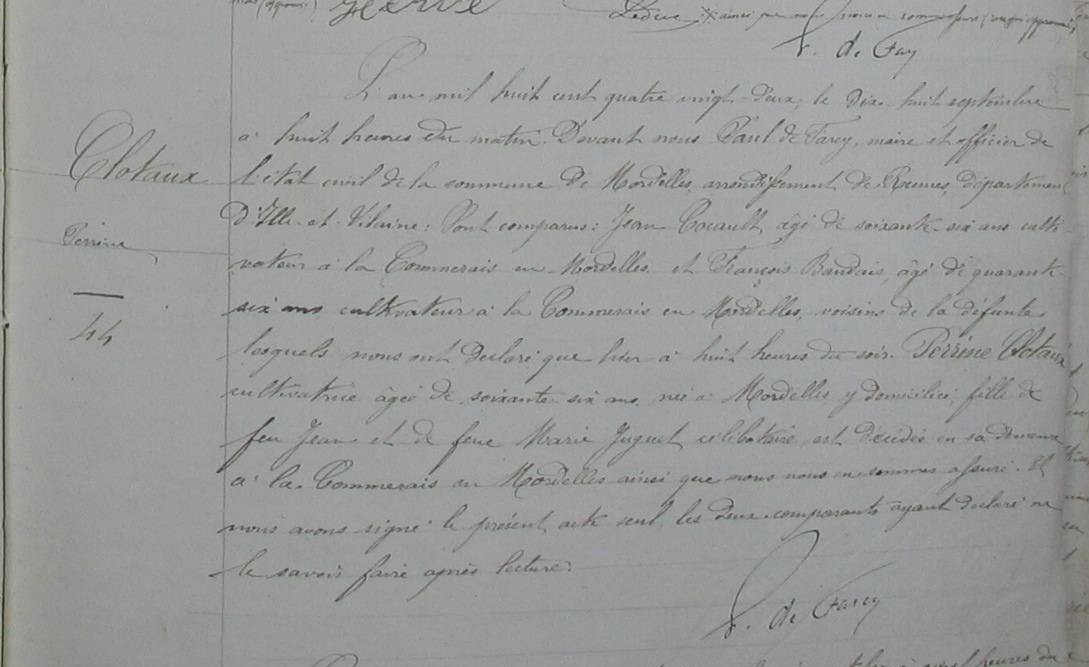 Hervé
Leduc
P. de Farcy
L'an mil huit cent quatre vingt-deux, le dix-huit septembre
à huit heures du matin. Devant nous Paul de Farcy, maire et officier de
l'état civil de la commune de Mordelles, arrondissement de Rennes, département
d'Ille-et-Vilaine: Sont comparus: Jean Cocault, âgé de soixante-six ans culti-
vateur à la Commerais en Mordelles, et François Baudais, âgé de quarante-
six ans, cultivateur à la Commerais en Mordelles, voisins de la défunte
lesquels nous ont déclaré que hier à huit heures du soir. Perrine Clotaux
cultivatrice âgée de soixante six ans, née à Mordelles, y domiciliée, fille de
feu Jean et de feue Marie Juguet, célibataire, est décédée en sa demeure
à la Commerais en Mordelles ainsi que nous nous en sommes assuré. Et
nous avons signé le présent acte seul, les deux comparants ayant déclaré ne
le savoir faire après lecture.
P. de Farcy
Clotaux
Perrine
44
heures du